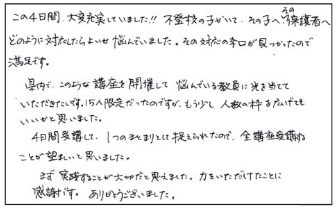 この4日間、大変充実していました!! 不登校の子がいて、その子へ、その保護者へ
どのように対応したらよいか悩んでいました。その対応の糸口が見つかったので
満足です。
県内で、このような講座を開催して 悩んでいる教員に光を当てて
いただきたいです。15人限定だったのですが、もう少し 人数の枠を広げても
いいかと思いました。
4日間受講して、1つのまとまりとして捉えられたので、全講座受講する
ことが望ましいと思いました。
まず 実践することが大切だと思えました。力をいただけたことに
感謝です。ありがとうございました。